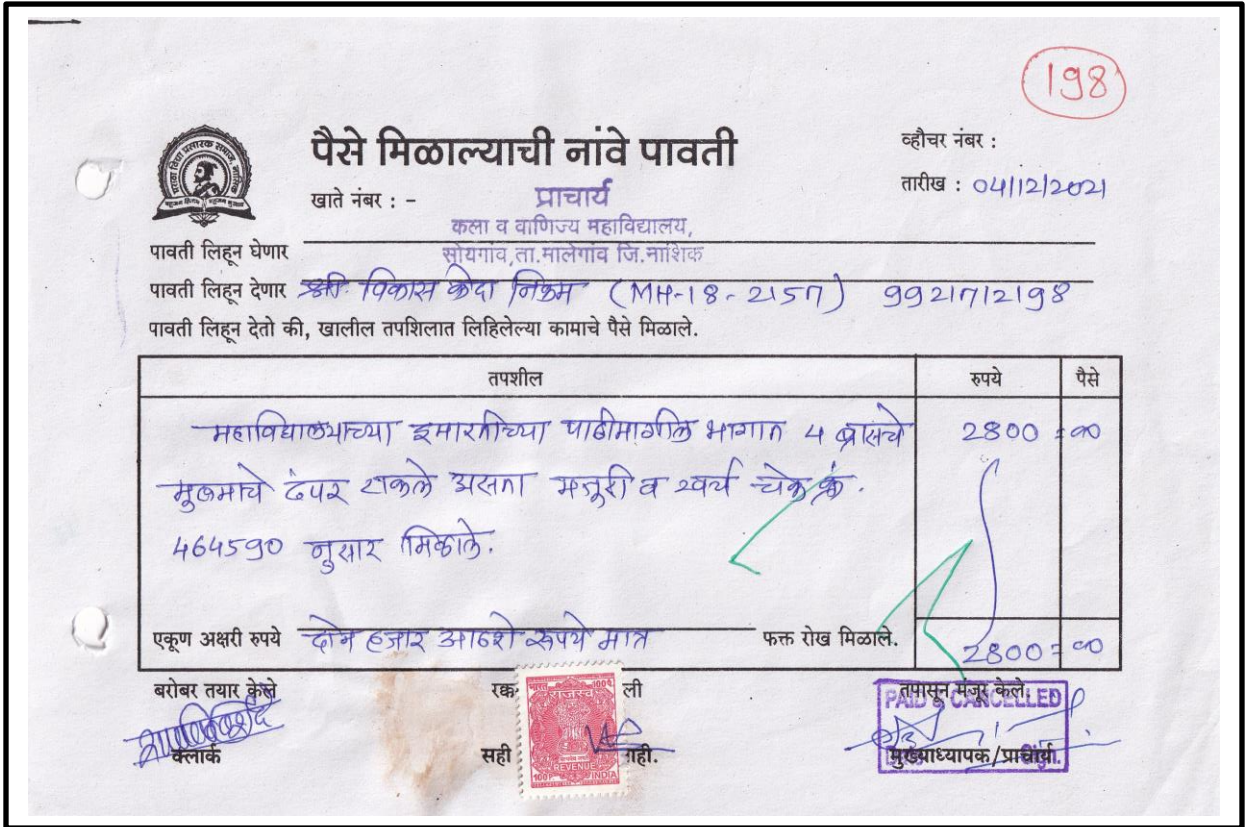 198
पैसे मिळाल्याची नांवे पावती
व्हौचर नंबर :
खाते नंबर : -
तारीख : 04/12/2021
प्राचार्य
कला व वाणिज्य महाविद्यालय,
सोयगांव,ता.मालेगांव जि.नाशिक
पावती लिहून घेणार
पावती लिहून देणार श्री. विकास केदा निकम (MH-18-2157) 9921712198
पावती लिहून देतो की, खालील तपशिलात लिहिलेल्या कामाचे पैसे मिळाले.
तपशील रुपये पैसे
महाविद्यालयाच्या इमारतीच्या पाठीमागील भागात 4 ब्रासचे 2800 = 00
मुरुमाचे ढंपर टाकले असता मजुरी व खर्च चेक क्रं.
464590 नुसार मिळाले.
एकूण अक्षरी रुपये दोन हजार आठशे रूपये मात्र फक्त रोख मिळाले. 2800 = 00
बरोबर तयार केले रक्क ली तपासून मंजूर केले.
PAID & CANCELLED
क्लार्क सही गही. मुख्याध्यापक/प्राचार्य
भारत राजस्व 100 P
REVENUE
100 P INDIA